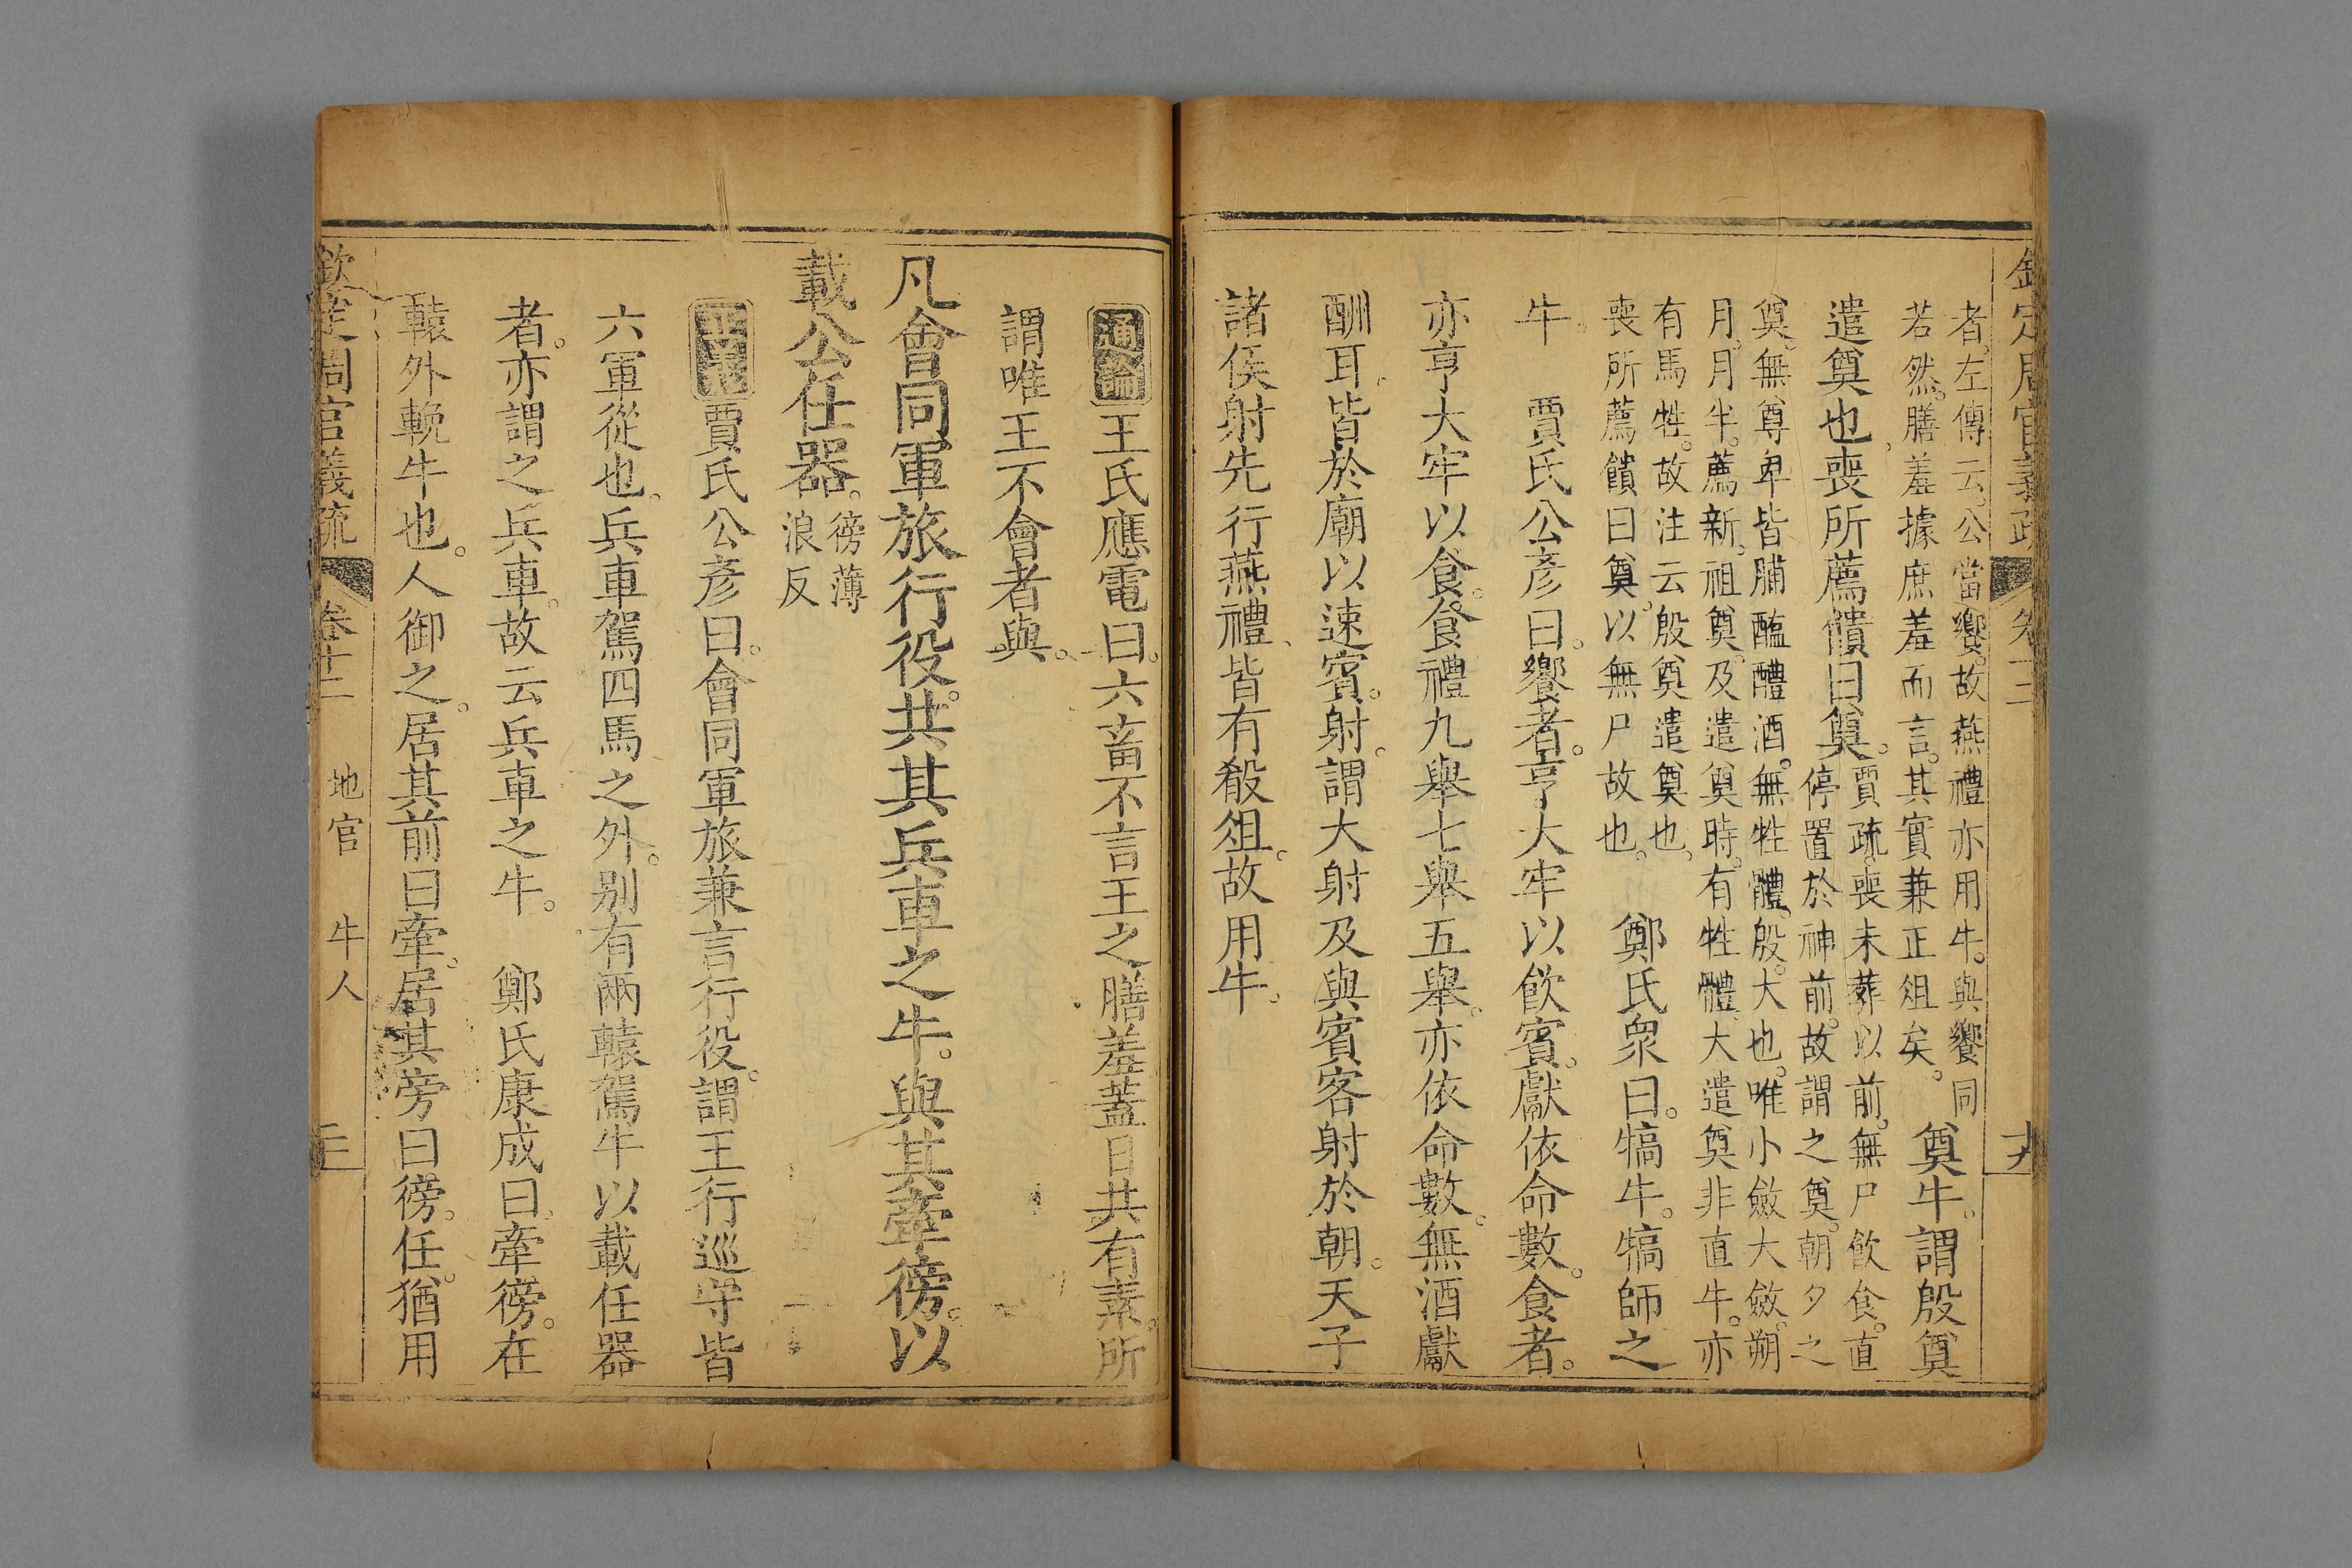 欽定周官義疏 卷十二
者。左傳云。公當饗。故燕禮亦用牛。與饗同
若然。膳羞據庶羞而言。其實兼正俎矣。
奠牛。謂殷奠
遣奠也。喪所薦饋曰奠。
賈疏。喪未葬以前。無尸飲食。直
停置於神前。故謂之奠。朝夕之
奠。無尊卑皆脯醢醴酒。無牲體。殷。大也。唯小斂大斂。朔
月。月半。薦新。祖奠。及遣奠時。有牲體。大遣奠非直牛。亦
有馬牲。故注云殷奠遣奠也。
喪所薦饋曰奠。以無尸故也。
鄭氏衆曰。犒牛。犒師之
牛。 賈氏公彥曰。饗者。亨大牢以飲賓。獻依命數。食者。
亦亨大牢以食。食禮九舉七舉五舉。亦依命數。無酒獻
酬耳。皆於廟以速賓。射。謂大射及與賓客射於朝。天子
諸侯射先行燕禮、皆有殽俎。故用牛。
通論 王氏應電曰。六畜不言王之膳羞蓋日共有素。所
謂唯王不會者與。
凡會同軍旅行役。共其兵車之牛。與其牽徬。以
載公任器。
徬薄
浪反
正義 賈氏公彥曰。會同軍旅兼言行役。謂王行巡守皆
六軍從也。兵車駕四馬之外。別有兩轅駕牛以載任器
者。亦謂之兵車。故云兵車之牛。 鄭氏康成曰。牽徬。在
轅外輓牛也。人御之。居其前曰牽。居其旁曰徬。任。猶用
欽定周官義疏 卷十二 地官 牛人